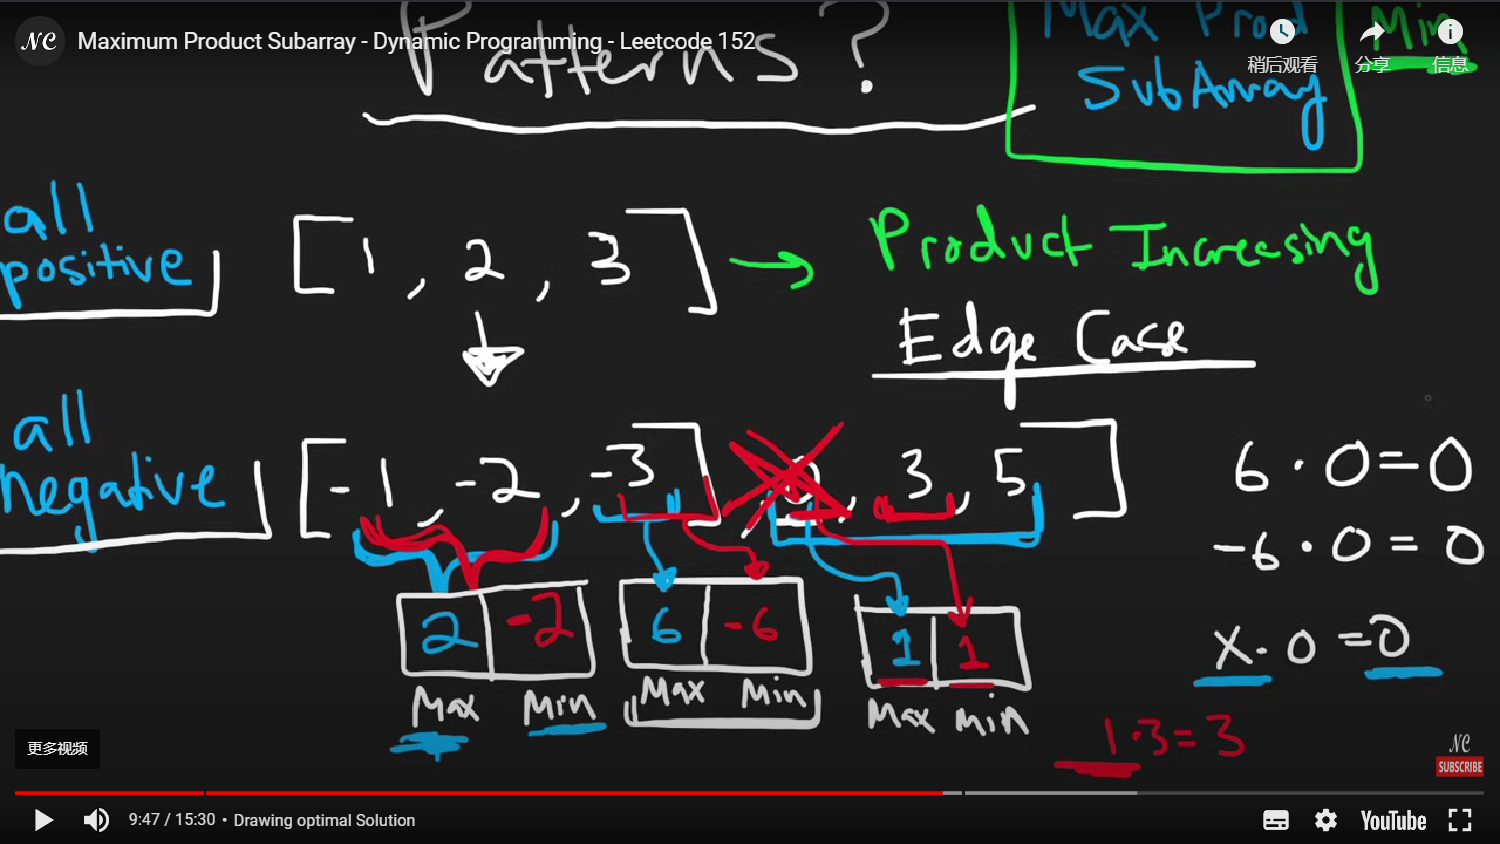 NC Maximum Product Subarray - Dynamic Programming - Leetcode 152
稍后观看 分享 信息
Patterns?
Max Prod Min
SubArray
all
positive
[1, 2, 3] → Product Increasing
Edge Case
all
negative
[-1, -2, -3] 0, 3, 5]
6 · 0 = 0
-6 · 0 = 0
x · 0 = 0
2 -2
Max Min
6 -6
Max Min
1 1
Max Min
1·3 = 3
更多视频
NC
SUBSCRIBE
9:47 / 15:30 • Drawing optimal Solution
YouTube